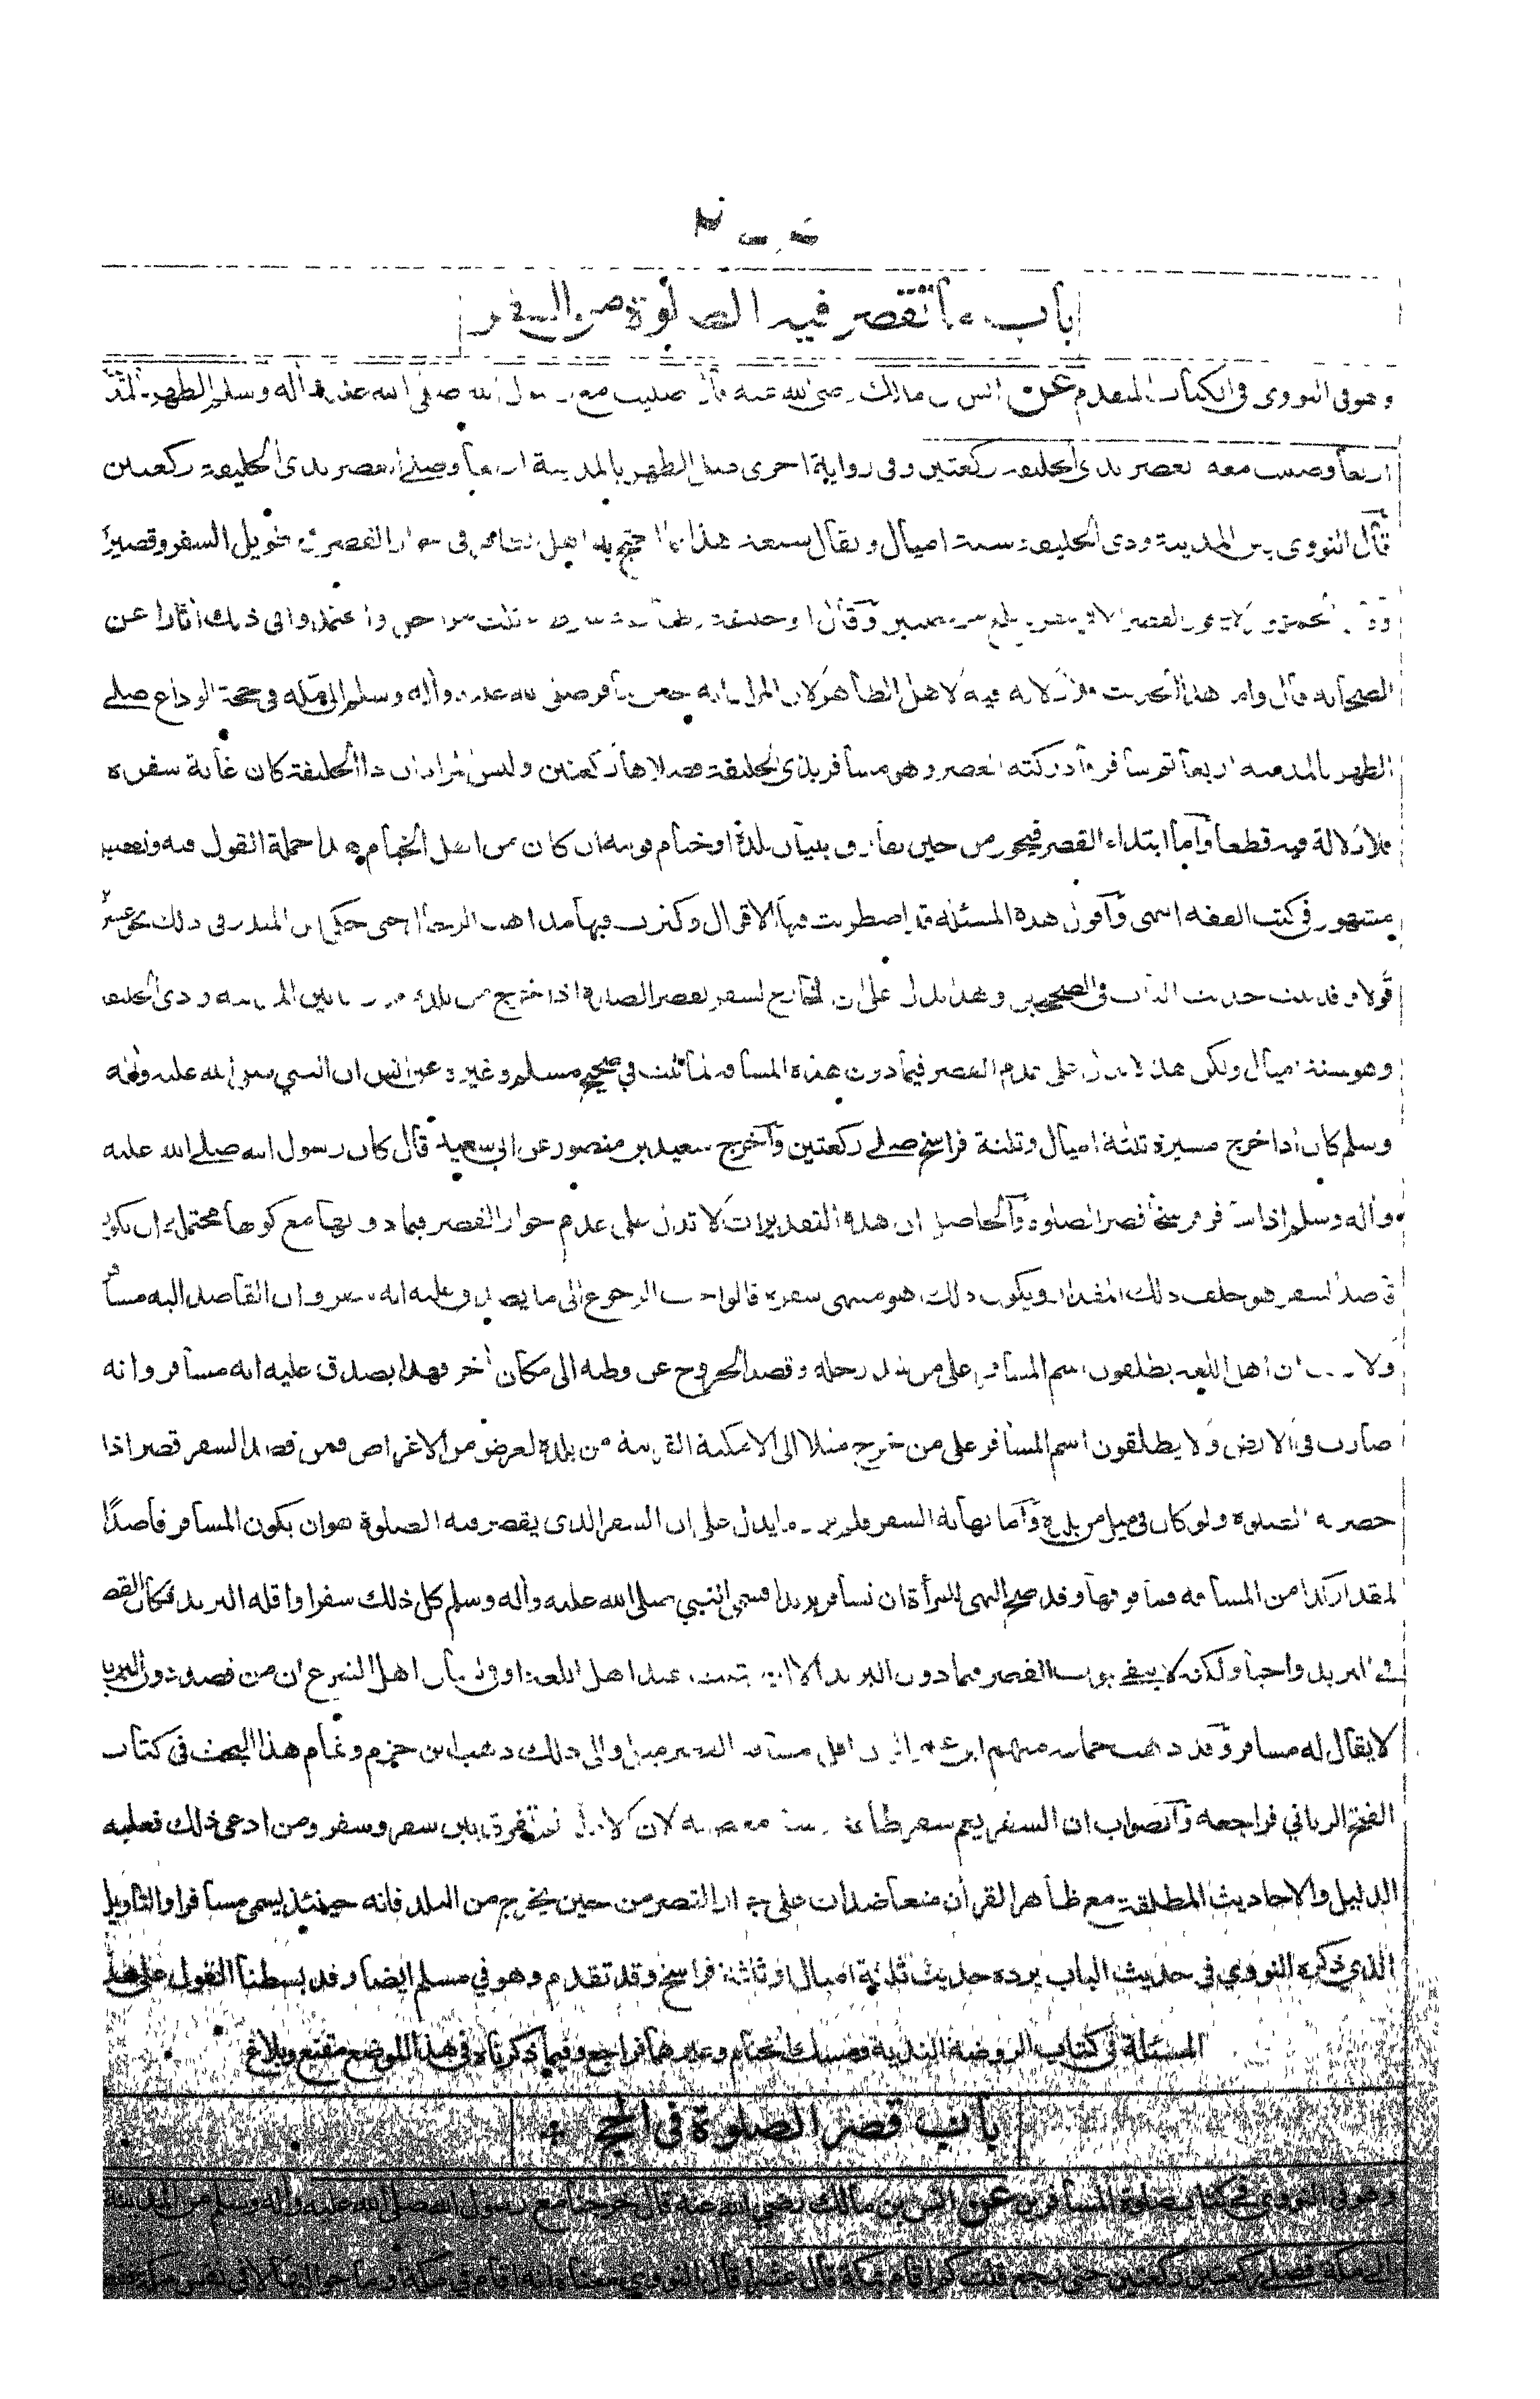 باب ما تقصر فيه الصلوة من السفر
وهو في النووي في الكتاب المتقدم عن انس بن مالك رضي الله عنه قال صليت مع رسول الله صلى الله عليه وأله وسلم الظهر بالمدينة
اربعا وصليت معه العصر بذي الحليفة ركعتين وفي رواية اخرى صلى الظهر بالمدينة اربعا وصلى العصر بذي الحليفة ركعتين
قال النووي بين المدينة وذي الحليفة ستة اميال ويقال سبعة هذا مما احتج به اهل الظاهر في جواز القصر في طويل السفر وقصيره
وقال الجمهور لا يجوز القصر الا في سفر يبلغ مرحلتين وقال ابو حنيفة وطائفة شرطه ثلث مراحل واعتمدوا في ذلك أثارا عن
الصحابة قال واما هذا الحديث فلا دلالة فيه لاهل الظاهر لان المراد انه حين سافر صلى الله عليه وأله وسلم الى مكة في حجة الوداع صلى
الظهر بالمدينة اربعا ثم سافر فأدركته العصر وهو مسافر بذي الحليفة فصلاها ركعتين وليس المراد ان ذا الحليفة كان غاية سفره
فلا دلالة فيه قطعا وأما ابتداء القصر فيجوز من حين يفارق بنيان بلده او خيام قومه ان كان من اهل الخيام هذا جملة القول فيه وتفصيله
مشهور في كتب الفقه انتهى وأقول هذه المسئلة قد اضطربت فيها الاقوال وكثرت فيها مذاهب الرجال حتى حكى ابن المنذر في ذلك نحو عشرين
قولا وقد ثبت حديث الباب في الصحيحين وهذا يدل على ان الخارج لسفر يقصر الصلوة اذا خرج من بلده قدر ما بين المدينة وذي الحليفة
وهو ستة اميال ولكن هذا لا يدل على عدم القصر فيما دون هذه المسافة لما ثبت في صحيح مسلم وغيره عن انس ان النبي صلى الله عليه وأله
وسلم كان اذا خرج مسيرة ثلثة اميال وثلثة فراسخ صلى ركعتين وأخرج سعيد بن منصور عن ابي سعيد قال كان رسول الله صلى الله عليه
وأله وسلم اذا سافر فرسخا قصر الصلوة والحاصل ان هذه التقديرات لا تدل على عدم جواز القصر فيما دونها مع كونها محتملة ان يكون
قاصدا لسفر هو خلف ذلك المقدار ويكون ذلك هو منتهى سفره قالواجب الرجوع الى ما يصدق عليه انه سفر وان القاصد اليه مسافر
ولا ريب ان اهل اللغة يطلقون اسم المسافر على من شد رحله وقصد الخروج عن وطنه الى مكان أخر فهذا يصدق عليه انه مسافر وانه
ضارب في الارض ولا يطلقون اسم المسافر على من خرج مثلا الى الامكنة القريبة من بلده لغرض من الاغراض فمن قصد السفر قصر اذا
حضرته الصلوة ولو كان في ميل من بلده وأما نهاية السفر فلم يرد ما يدل على ان السفر الذي يقصر فيه الصلوة هو ان يكون المسافر قاصدًا
لمقدار كذا من المسافة فما فوقها وقد صح النهي للمرأة ان تسافر بريدا فسمى النبي صلى الله عليه وأله وسلم كل ذلك سفرا واقله البريد فكان القصر
في البريد واجبا ولكنه لا ينفي ثبوت القصر فيما دون البريد الا ان يثبت عند اهل اللغة او في لسان اهل الشرع ان من قصد دون البريد
لا يقال له مسافر وقد ذهب جماعة منهم ابن عمر الى ان اقل مسافة القصر ميل والى ذلك ذهب ابن حزم وتمام هذا البحث في كتاب
الفتح الرباني فراجعه والصواب ان السفر يعم سفر طاعة وسفر معصية لان الادلة لم تفرق بين سفر وسفر ومن ادعى ذلك فعليه
الدليل والاحاديث المطلقة مع ظاهر القرأن متعاضدات على جواز القصر من حين يخرج من البلد فانه حينئذ يسمى مسافرا والتأويل
الذي ذكره النووي في حديث الباب يرده حديث ثلثة اميال او ثلثة فراسخ وقد تقدم وهو في مسلم ايضا وقد بسطنا القول على هذه
المسئلة في كتاب الروضة الندية ومسك الختام وغيرهما فراجع وفيما ذكرناه في هذا الموضع مقنع وبلاغ
باب قصر الصلوة في الحج
وهو في النووي في كتاب صلوة المسافرين عن انس بن مالك رضي الله عنه قال خرجنا مع رسول الله صلى الله عليه وأله وسلم من المدينة
الى مكة فصلى ركعتين ركعتين حتى رجع قلت كم اقام بمكة قال عشرا قال النووي معناه انه اقام في مكة وما حواليها لا في نفس مكة فقط